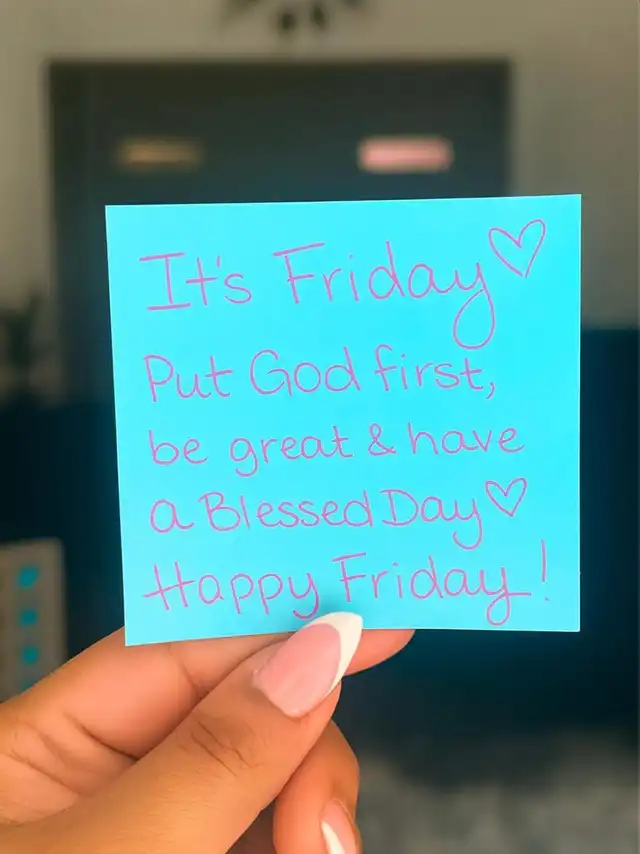 It's Friday♡
Put God first,
be great & have
a Blessed Day♡
Happy Friday!